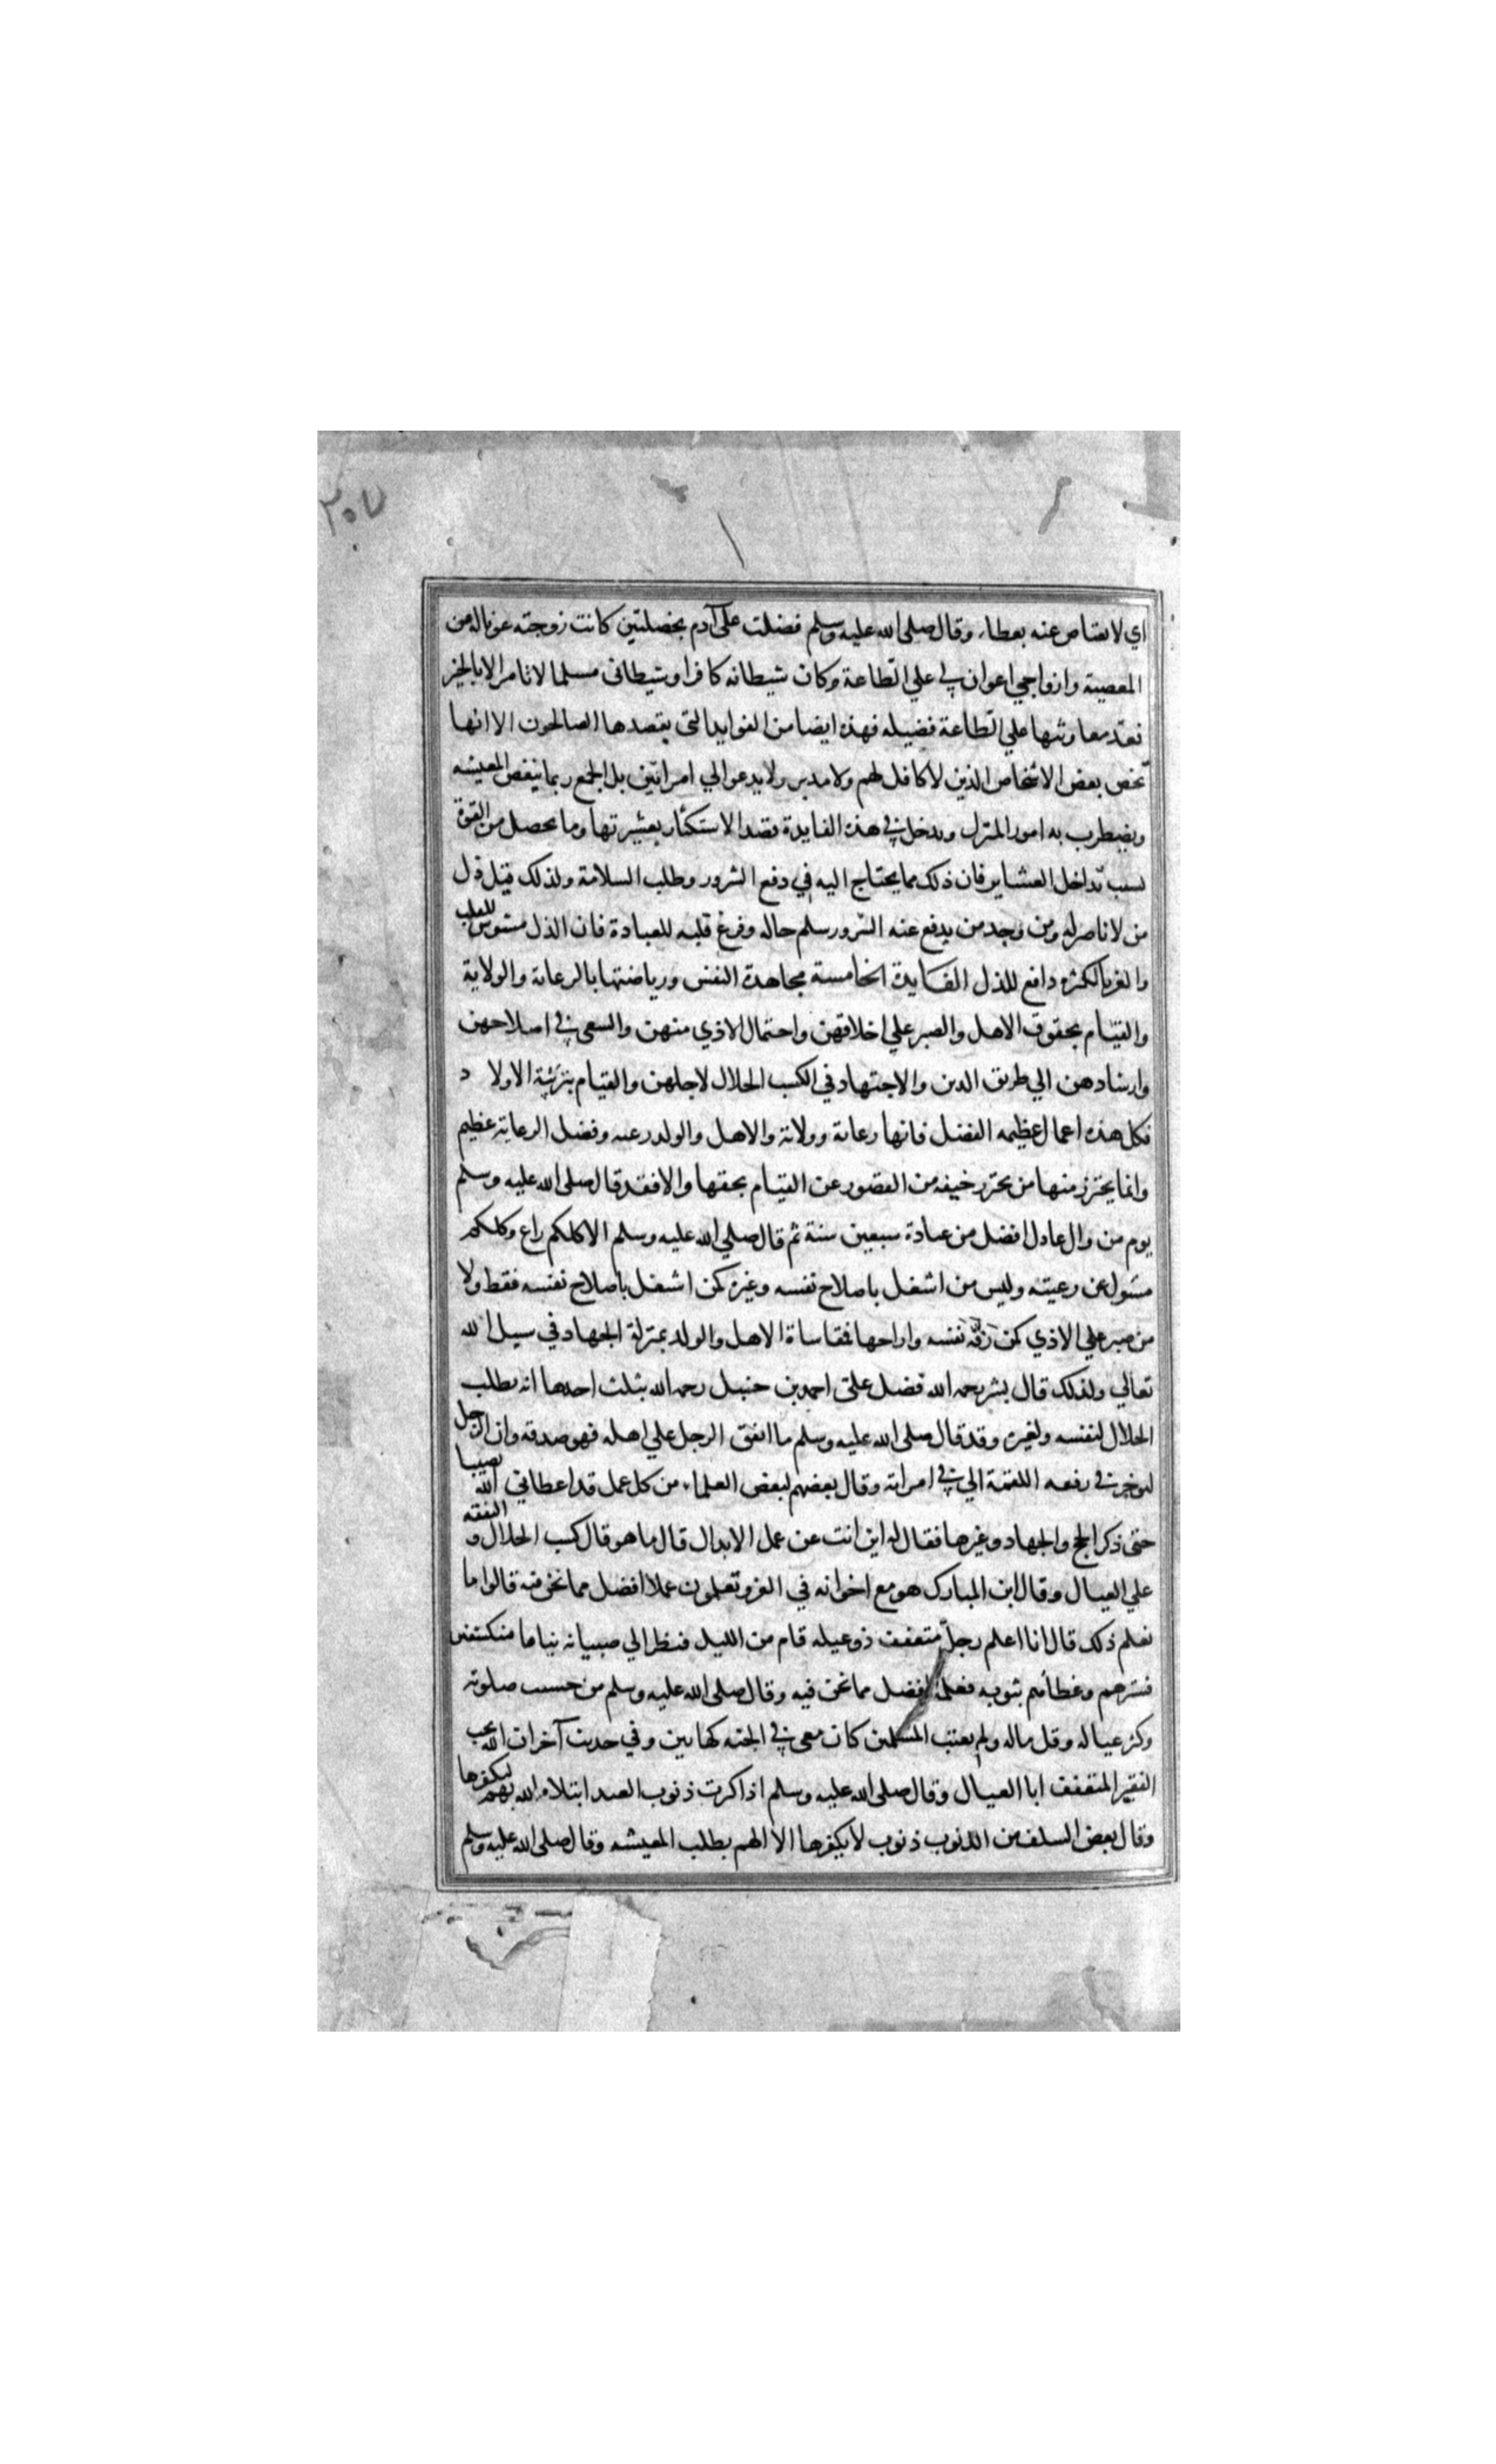 ٢٠٧
اي لا يعتاض عنه بعطاء وقال صلى الله عليه وسلم فضلت على آدم بخصلتين كانت زوجته عونا له من
المعصية وازواجي اعوان لي علي الطاعة وكان شيطانه كافرا وشيطاني مسلما لا يامر الا بالخير
فعد معاونتها علي الطاعة فضيله فهذه ايضا من الفوايد التي يقصدها الصالحون الا انها
تخص بعض الاشخاص الذين لا كافل لهم ولا مدبر ولا يدعوا الي امراتين بل الجمع ربما ينغص المعيشه
ويضطرب به امور المنزل ويدخل في هذه الفايدة قصد الاستكثار بعشيرتها وما يحصل من القوة
بسبب تداخل العشاير فان ذلك مما يحتاج اليه في دفع الشرور وطلب السلامة ولذلك قيل ذل
من لا ناصر له ومن وجد من يدفع عنه الشرور سلم حاله وفرغ قلبه للعبادة فان الذل مشوش للقلب
والعز بالكثره دافع للذل الفايدة الخامسة مجاهدة النفس ورياضتها بالرعاية والولاية
والقيام بحقوق الاهل والصبر علي اخلاقهن واحتمال الاذي منهن والسعي في اصلاحهن
وارشادهن الي طريق الدين والاجتهاد في الكسب الحلال لاجلهن والقيام بتربية الاولاد
فكل هذه اعمال عظيمه الفضل فانها رعاية وولاية والاهل والولد رعيه وفضل الرعاية عظيم
وانما يحترز منها من يحترز خيفه من القصور عن القيام بحقها والا فقد قال صلى الله عليه وسلم
يوم من وال عادل افضل من عبادة سبعين سنة ثم قال صلي الله عليه وسلم الا كلكم راع وكلكم
مسئول عن رعيته وليس من اشتغل باصلاح نفسه وغيره كمن اشتغل باصلاح نفسه فقط ولا
من صبر علي الاذي كمن رفه نفسه واراحها فمقاساة الاهل والولد بمنزلة الجهاد في سبيل الله
تعالي ولذلك قال بشر رحمه الله فضل علي احمد بن حنبل رحمه الله بثلث احدها انه يطلب
الحلال لنفسه ولغيره وقد قال صلى الله عليه وسلم ما انفق الرجل علي اهله فهو صدقه وان الرجل
ليوجر في رفعه اللقمة الي في امراته وقال بعضهم لبعض العلماء من كل عمل قد اعطاني الله نصيبا
حتي ذكر الحج والجهاد وغيرها فقال له اين انت عن عمل الابدال قال ما هو قال كسب الحلال والنفقه
علي العيال وقال ابن المبارك هو مع اخوانه في الغزو تعلمون عملا افضل مما نحن فيه قالوا ما
نعلم ذلك قال انا اعلم رجل متعفف ذو عيله قام من الليل فنظر الي صبيانه نياما منكشفين
فسترهم وغطاهم بثوبه فعله افضل مما نحن فيه وقال صلى الله عليه وسلم من حسنت صلوته
وكثر عياله وقل ماله ولم يغتب المسلمين كان معي في الجنة كهاتين وفي حديث آخر ان الله يحب
الفقير المتعفف ابا العيال وقال صلى الله عليه وسلم اذا كثرت ذنوب العبد ابتلاه الله بهم ليكفرها
وقال بعض السلف من الذنوب ذنوب لا يكفرها الا الهم بطلب المعيشه وقال صلى الله عليه وسلم